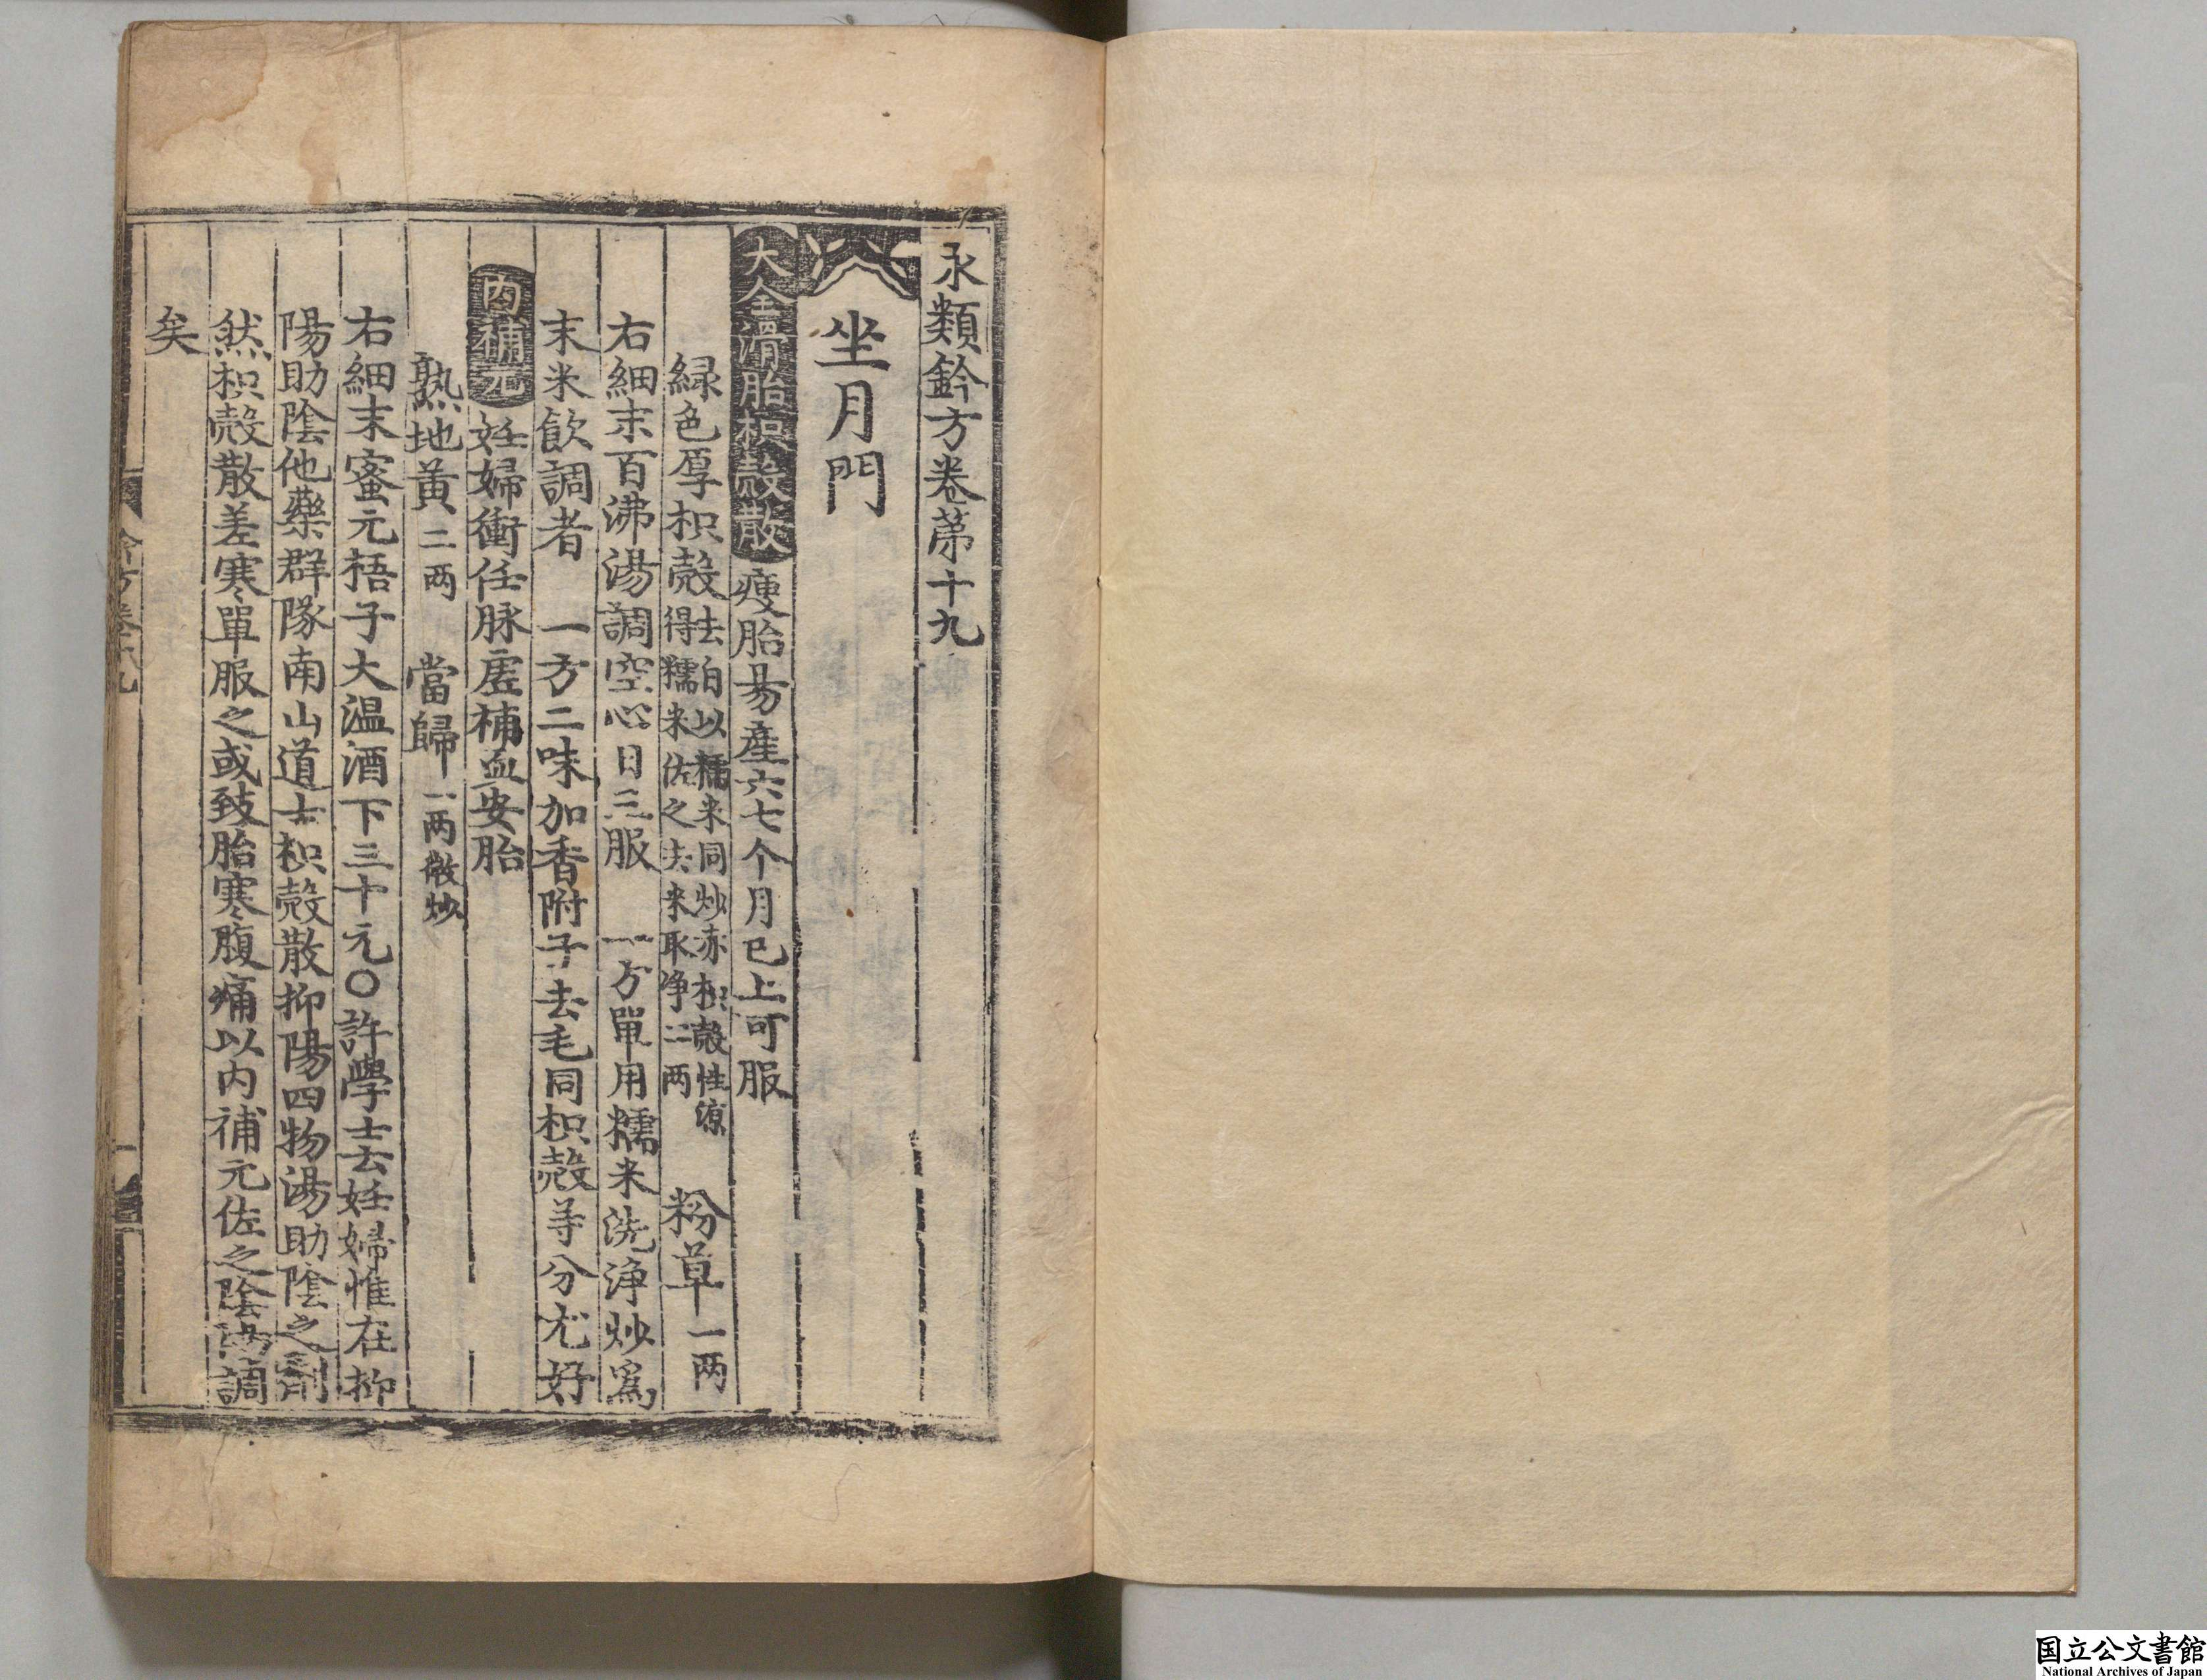 永類鈐方卷第十九
坐月門
大全滑胎枳殼散 瘦胎易產六七个月已上可服
綠色厚枳殼 去白以糯米同炒赤枳殼性凉
得糯米佐之去米取净二两 粉草 一两
右細末百沸湯調空心日三服 一方單用糯米洗淨炒爲
末米飲調者 一方二味加香附子去毛同枳殼等分尤好
内補元 妊婦衝任脉虛補血安胎
熟地黃 二两 當歸 一两微炒
右細末蜜元梧子大温酒下三十元○許學士云妊婦惟在抑
陽助陰他藥群隊南山道士枳殼散抑陽四物湯助陰之劑
然枳殼散差寒單服之或致胎寒腹痛以内補元佐之陰陽調
矣
国立公文書館
National Archives of Japan